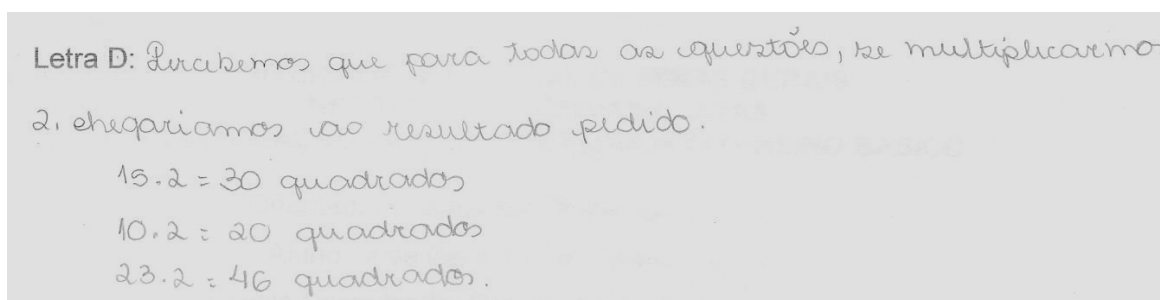 Letra D: Percebemos que para todas as questões, se multiplicarmo
2, chegariamos ao resultado pedido.
15.2 = 30 quadrados
10.2 = 20 quadrados
23.2 = 46 quadrados.